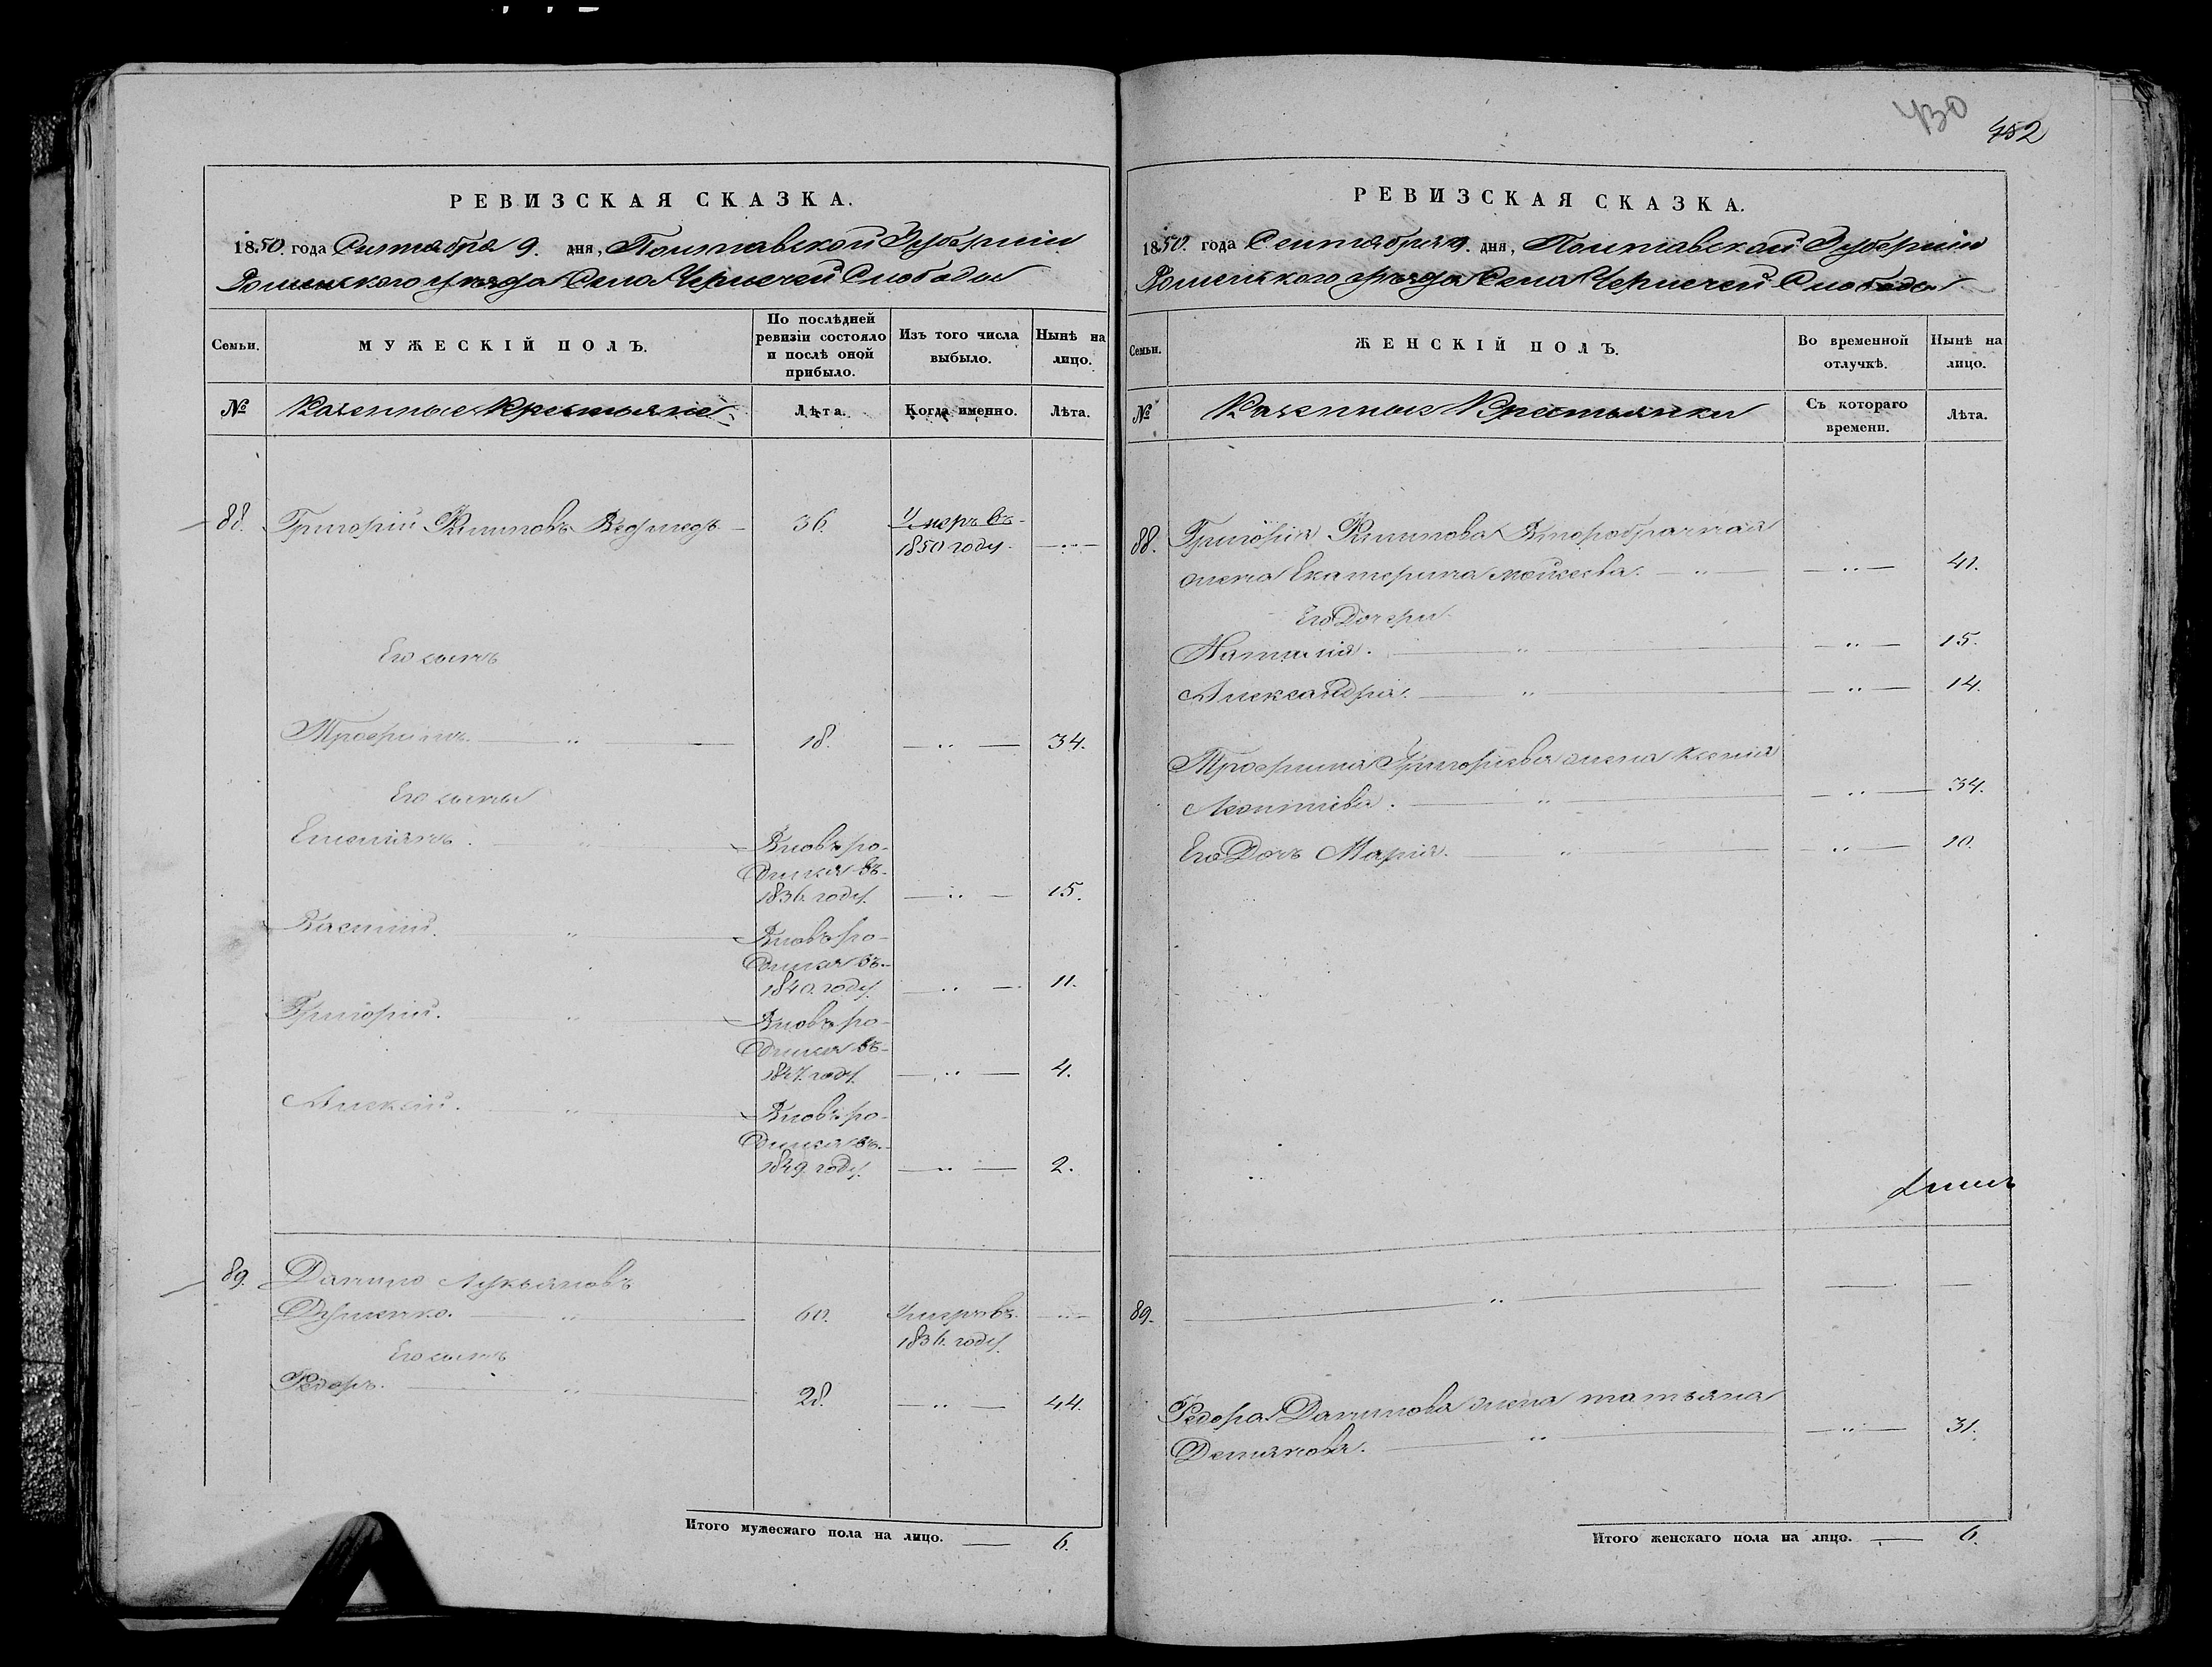 430
452
РЕВИЗСКАЯ СКАЗКА.
1850. года Сентября 9. дня, Полтавской Губернии
Роменского уезда Села Чернечей Слободы
Семьи.
МУЖЕСКІЙ ПОЛЪ.
По послѣдней ревизіи состояло и послѣ оной прибыло.
Изъ того числа выбыло.
Нынѣ на лицо.
№
Казенные Крестьяне
Лѣта.
Когда именно.
Лѣта.
88. Григорій Филиповъ Ведмедь 36. Умеръ въ
1850 году.
Его сынъ
Трофимъ. 18. 34.
Его сыны
Емеліянъ. Вновь ро-
дился въ
1836. году. 15.
Василій. Вновь ро-
дился въ
1840. году. 11.
Григорій. Вновь ро-
дился въ
1847. году. 4.
Алексій. Вновь ро-
дился въ
1849. году. 2.
89. Данило Лукьяновъ
60. Умеръ въ
1836. году.
Его сынъ
Федоръ. 28. 44.
Итого мужескаго пола на лицо. 6.
РЕВИЗСКАЯ СКАЗКА.
1850. года Сентября 9. дня, Полтавской Губернии
Роменского уезда Села Чернечей Слободы
Семьи.
ЖЕНСКІЙ ПОЛЪ.
Во временной отлучкѣ.
Нынѣ на лицо.
№
Казенные Крестьянки
Съ котораго времени.
Лѣта.
88. Григорія Филипова Второбрачная
жена Екатерина Мойсеева. 41.
Его Дочери
Наталія. 15.
Александра. 14.
Трофима Григорьева жена Ксенія
Леонтіева. 34.
Его Дочь Марія. 10.
89.
Федора Данилова жена татьяна
Демянова. 31.
Итого женскаго пола на лицо. 6.